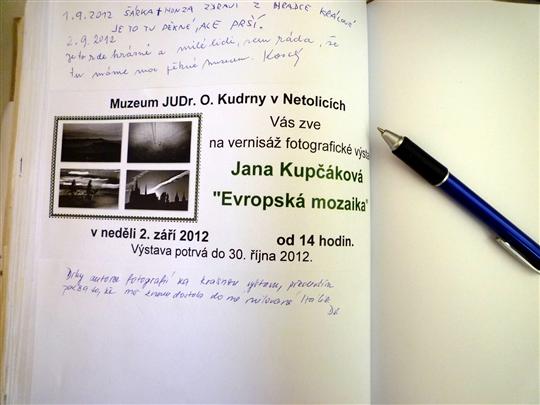 1.9.2012 ŠÁRKA + HONZA ZDRAVÍ Z HRADCE KRÁLOVÉ
JE TO TU PĚKNÉ, ALE PRŠÍ.
2.9.2012
je to zde krásné a milé lidi, jsem ráda, že
tu máme moc pěkné muzeum.
Muzeum JUDr. O. Kudrny v Netolicích
Vás zve
na vernisáž fotografické výsta
Jana Kupčáková
"Evropská mozaika"
v neděli 2. září 2012 od 14 hodin.
Výstava potrvá do 30. října 2012.
Díky autorce fotografií za krásnou výstavu, především
za to, že mě znovu dostala do mé milované Itálie